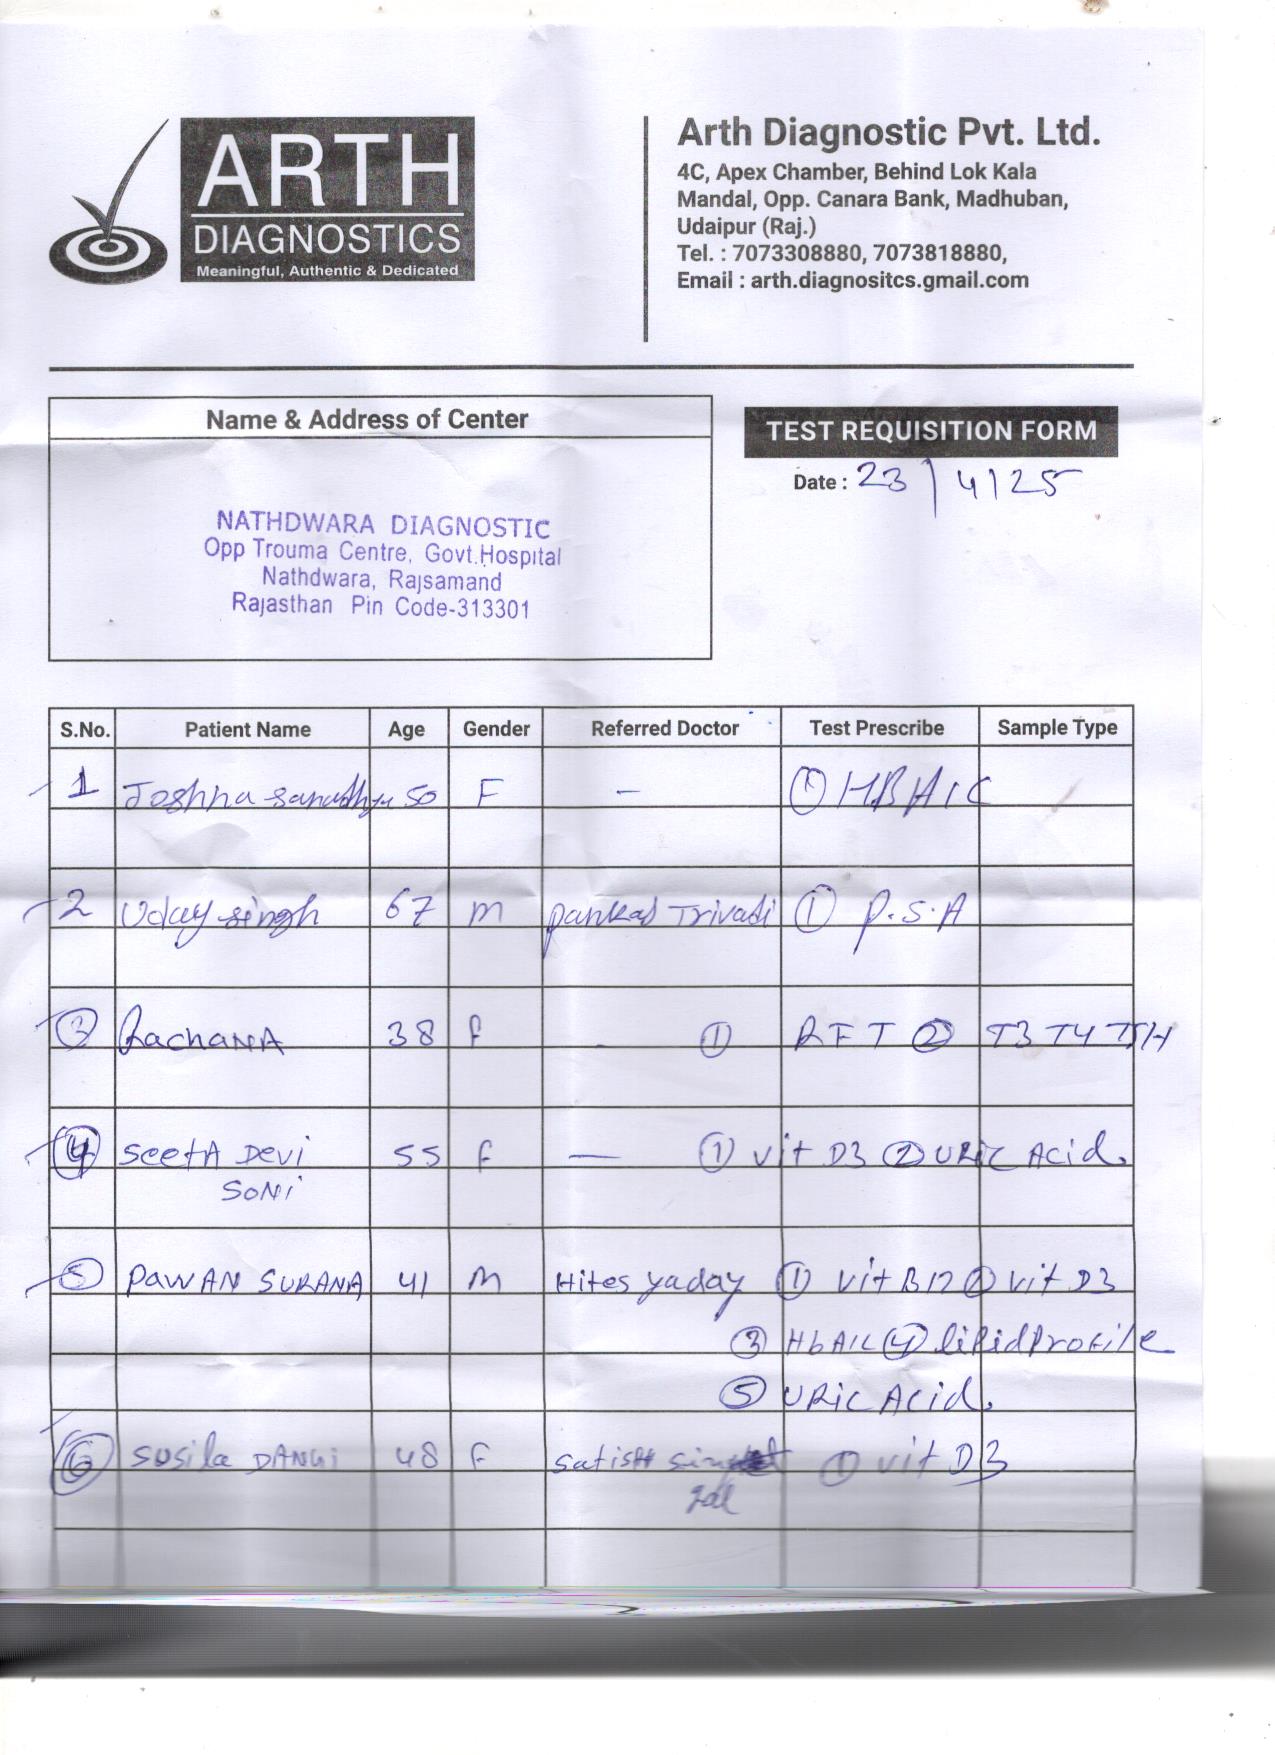 ARTH
DIAGNOSTICS
Meaningful, Authentic & Dedicated
Arth Diagnostic Pvt. Ltd.
4C, Apex Chamber, Behind Lok Kala
Mandal, Opp. Canara Bank, Madhuban,
Udaipur (Raj.)
Tel. : 7073308880, 7073818880,
Email : arth.diagnositcs.gmail.com
Name & Address of Center
NATHDWARA DIAGNOSTIC
Opp Trouma Centre, Govt.Hospital
Nathdwara, Rajsamand
Rajasthan Pin Code-313301
TEST REQUISITION FORM
Date : 23/4/25
S.No. Patient Name Age Gender Referred Doctor Test Prescribe Sample Type
1 Joshna sanadhya 50 F - ① HBA1C
2 Uday singh 67 M pankaj Trivadi ① P.S.A
③ RachaNA 38 F - ① RFT ② T3 T4 TSH
④ SeetA Devi 55 F — ① Vit D3 ② URIC Acid.
SONI
⑤ PAWAN SURANA 41 M Hites yadav ① Vit B12 ② Vit D3
③ HbA1C ④ lipid Profile
⑤ URIC ACid.
⑥ SUSila DANGI 48 F SatisH ① Vit D3